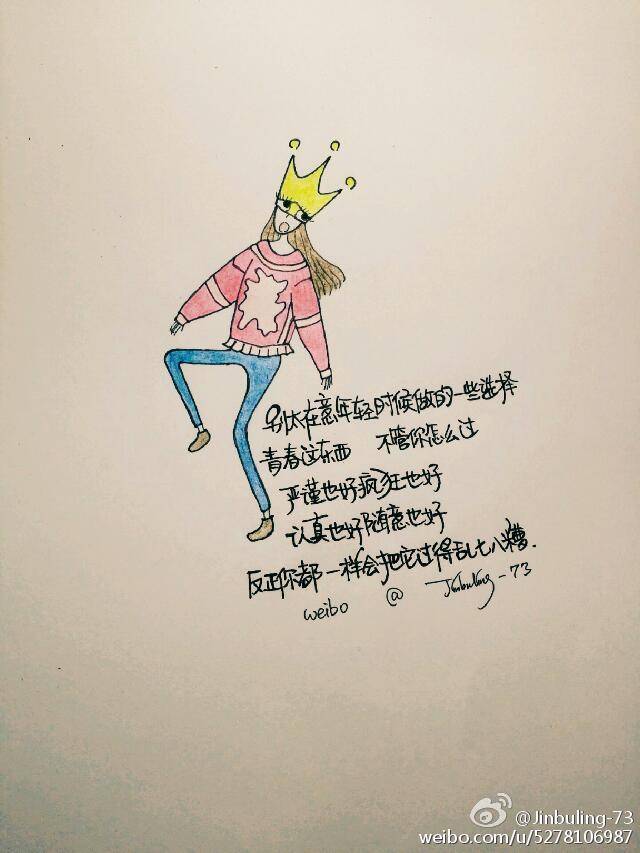 别太在意年轻时候做的一些选择
青春这东西 不管你怎么过
严谨也好疯狂也好
认真也好随意也好
反正你都一样会把它过得乱七八糟.
weibo @ Jinbuling-73
@Jinbuling-73
weibo.com/u/5278106987